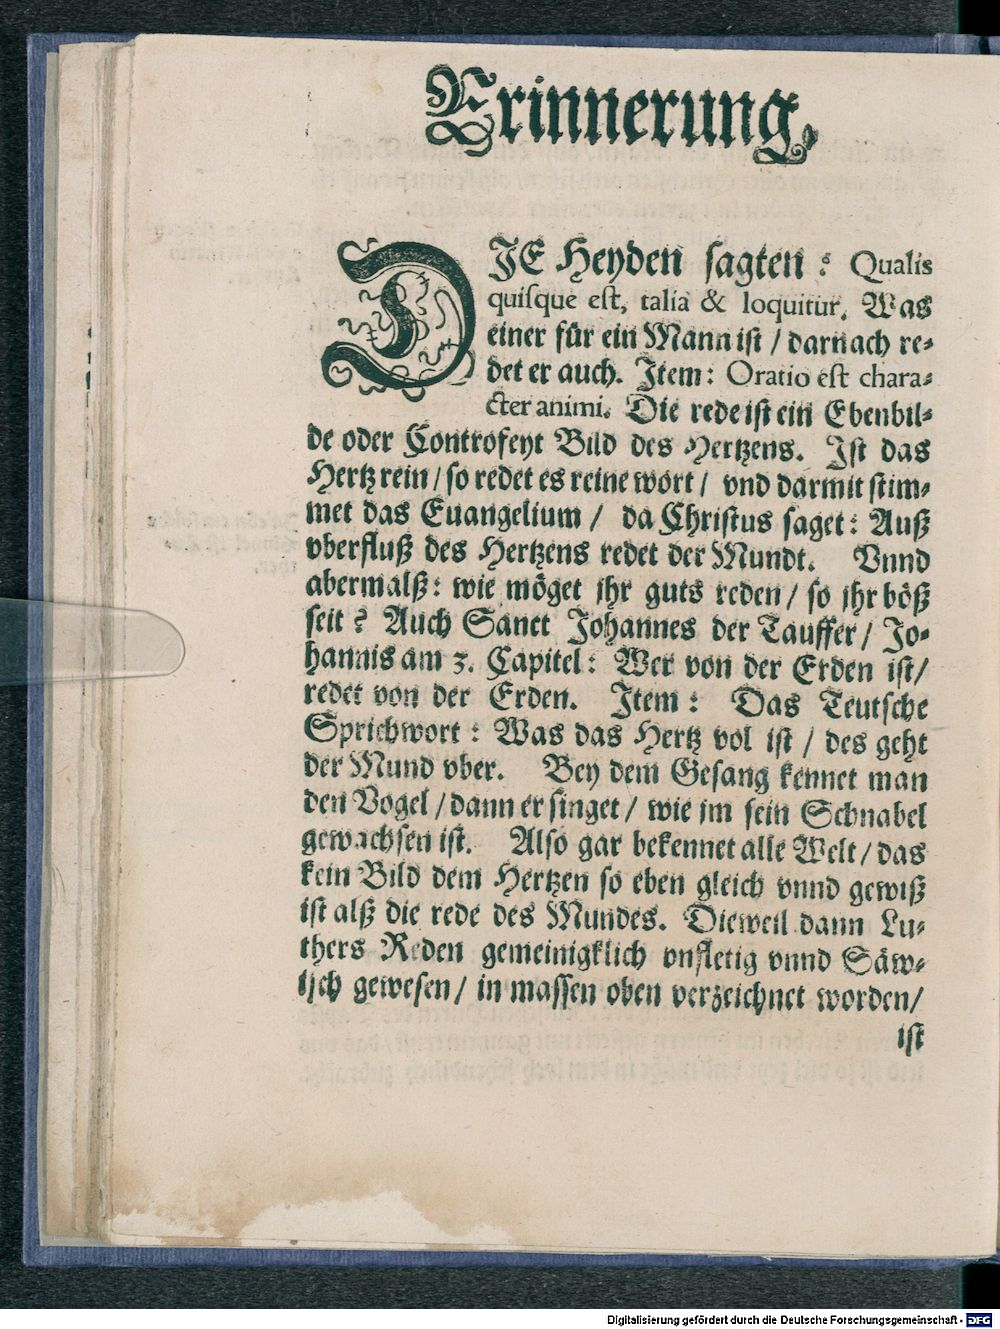 Erinnerung.
DIE Heyden sagten: Qualis
quisque est, talia & loquitur. Was
einer für ein Mann ist / darnach re-
det er auch. Item: Oratio est chara-
cter animi. Die rede ist ein Ebenbil-
de oder Controfeyt Bild des Hertzens. Ist das
Hertz rein / so redet es reine wort / vnd darmit stim-
met das Euangelium / da Christus saget: Auß
vberfluß des Hertzens redet der Mundt. Vnnd
abermalß: wie möget jhr guts reden / so jhr böß
seit? Auch Sanct Johannes der Tauffer / Jo-
hannis am 3. Capitel: Wer von der Erden ist /
redet von der Erden. Item: Das Teutsche
Sprichwort: Was das Hertz vol ist / des geht
der Mund vber. Bey dem Gesang kennet man
den Vogel / dann er singet / wie jm sein Schnabel
gewachsen ist. Also gar bekennet alle Welt / das
kein Bild dem Hertzen so eben gleich vnnd gewiß
ist alß die rede des Mundes. Dieweil dann Lu-
thers Reden gemeinigklich vnfletig vnnd Säw-
isch gewesen / in massen oben verzeichnet worden /
ist
Digitalisierung gefördert durch die Deutsche Forschungsgemeinschaft - DFG